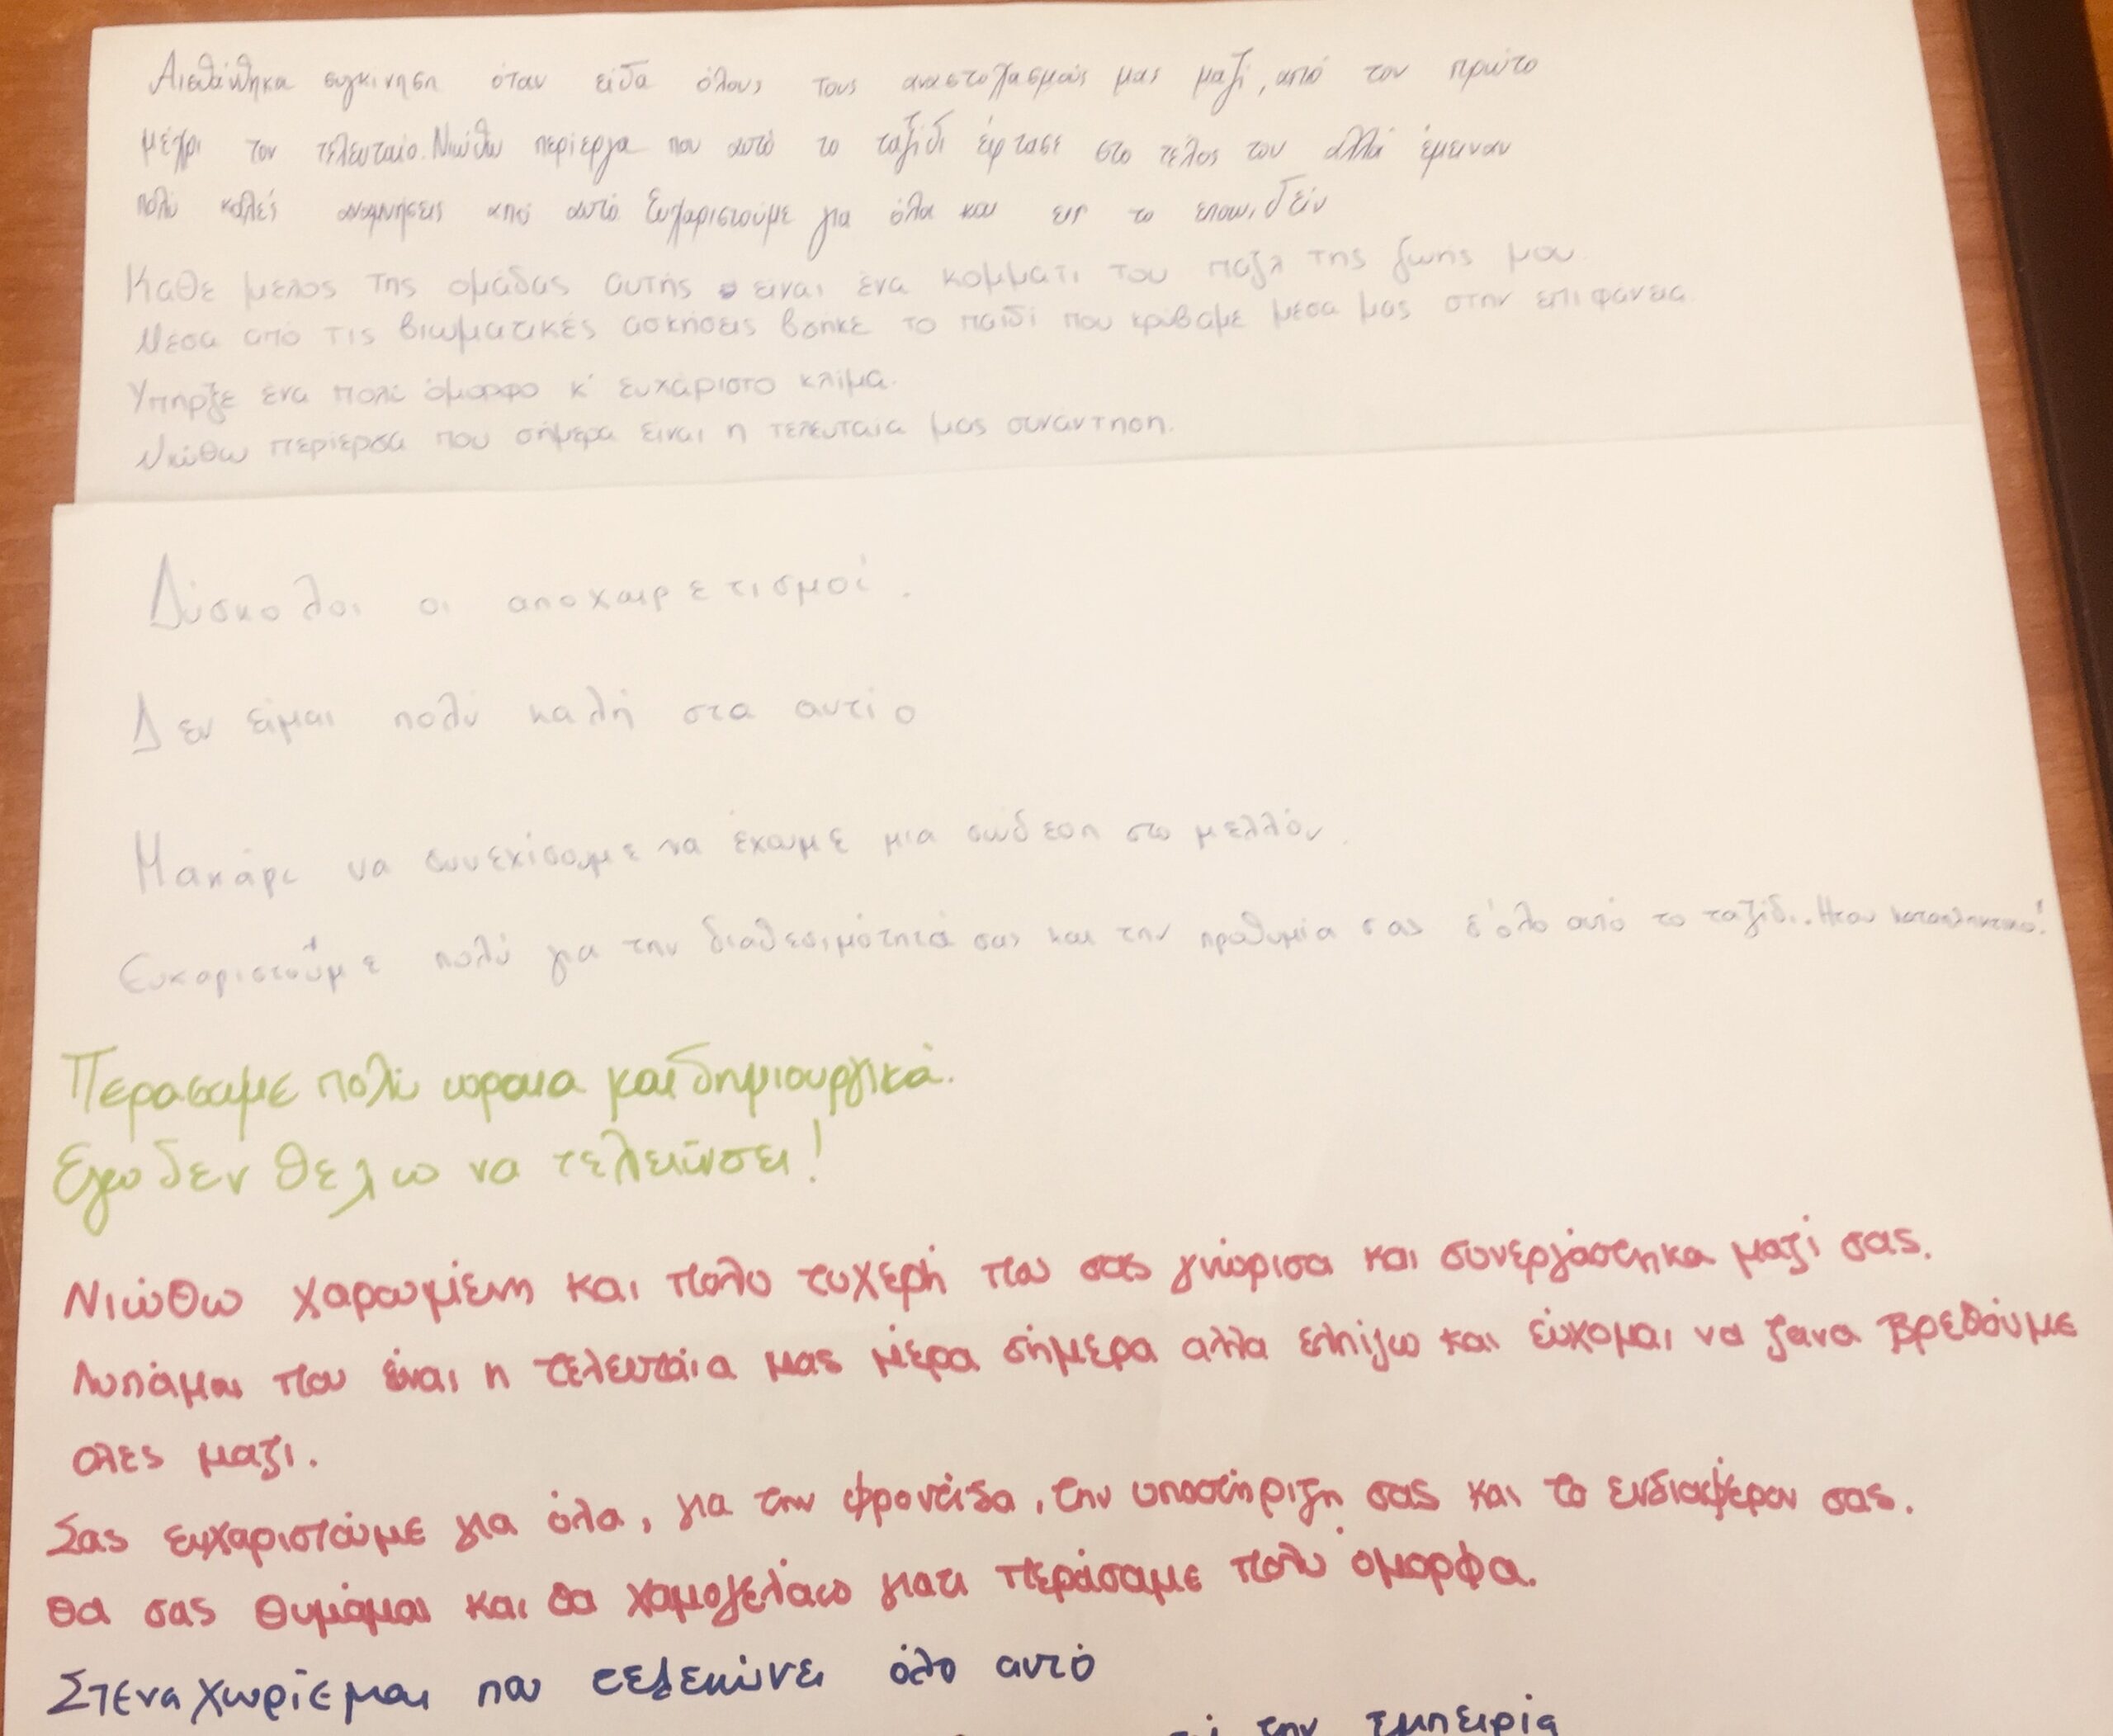 Αισθάνθηκα συγκίνηση όταν είδα όλους τους αναστοχασμούς μας μαζί, από τον πρώτο
μέχρι τον τελευταίο. Νιώθω περίεργα που αυτό το ταξίδι έφτασε στο τέλος του αλλά έμειναν
πολύ καλές αναμνήσεις από αυτό. Ευχαριστούμε για όλα και εις το επανιδείν
Κάθε μέλος της ομάδας αυτής είναι ένα κομμάτι του παζλ της ζωής μου.
Μέσα από τις βιωματικές ασκήσεις βγήκε το παιδί που κρύβαμε μέσα μας στην επιφάνεια.
Υπήρξε ένα πολύ όμορφο κ' ευχάριστο κλίμα.
Νιώθω περίεργα που σήμερα είναι η τελευταία μας συνάντηση.
Δύσκολοι οι αποχαιρετισμοί.
Δεν είμαι πολύ καλή στα αντίο
Μακάρι να συνεχίσουμε να έχουμε μια σύνδεση στο μέλλον.
Ευχαριστούμε πολύ για την διαθεσιμότητά σας και την προθυμία σας σ'όλο αυτό το ταξίδι. Ήταν καταπληκτικό!
Περασαμε πολύ ωραια και δημιουργικά.
Εγω δεν θελω να τελειώσει!
Νιώθω χαρουμένη και πολυ τυχερή που σας γνώρισα και συνεργάστηκα μαζί σας.
Λυπάμαι που είναι η τελευταία μας μέρα σήμερα αλλα ελπίζω και εύχομαι να ξανα βρεθούμε
ολες μαζι.
Σας ευχαριστούμε για όλα, για την φροντίδα, την υποστήριξη σας και το ενδιαφέρον σας.
Θα σας θυμάμαι και θα χαμογελάω γιατι περάσαμε πολυ όμορφα.
Στεναχωριέμαι που τελειώνει όλο αυτό
την εμπειρία